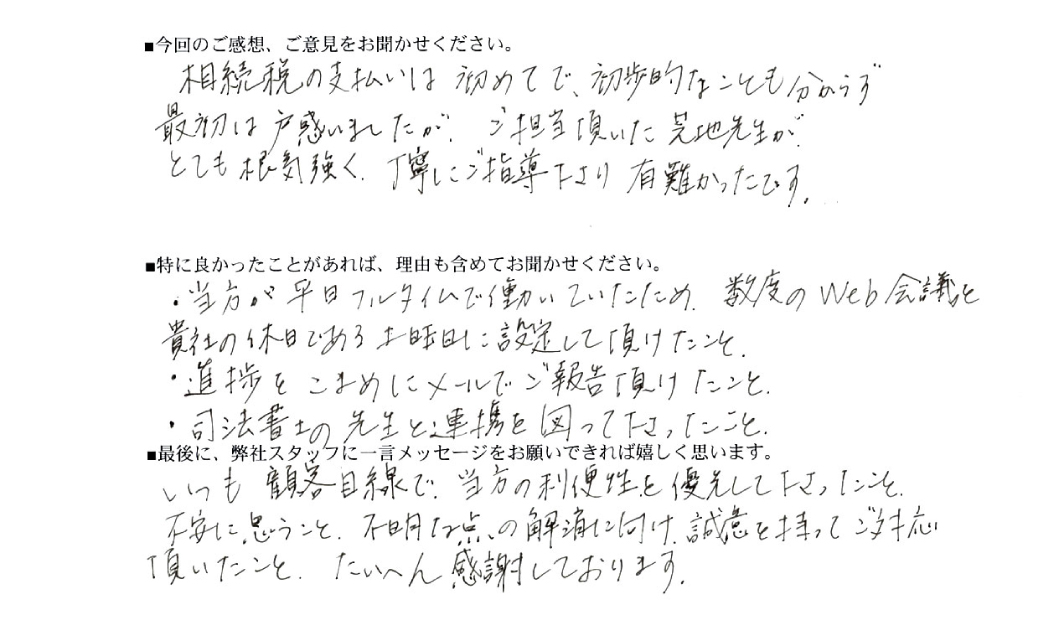 ■今回のご感想、ご意見をお聞かせください。
相続税の支払いは初めてで、初歩的なことも分からず
最初は戸惑いましたが、ご担当頂いた 先生が、
とても根気強く、丁寧にご指導下さり 有難かったです。
■特に良かったことがあれば、理由も含めてお聞かせください。
・当方が平日フルタイムで働いていたため、数度のWeb会議を
貴社の休日である土日に設定して頂けたこと。
・進捗をこまめにメールでご報告頂けたこと。
・司法書士の先生と連携を図って下さったこと。
■最後に、弊社スタッフに一言メッセージをお願いできれば嬉しく思います。
いつも顧客目線で、当方の利便性を優先して下さったこと、
不安に思うこと、不明な点、の解消に向け、誠意を持ってご対応
頂いたこと、たいへん感謝しております。